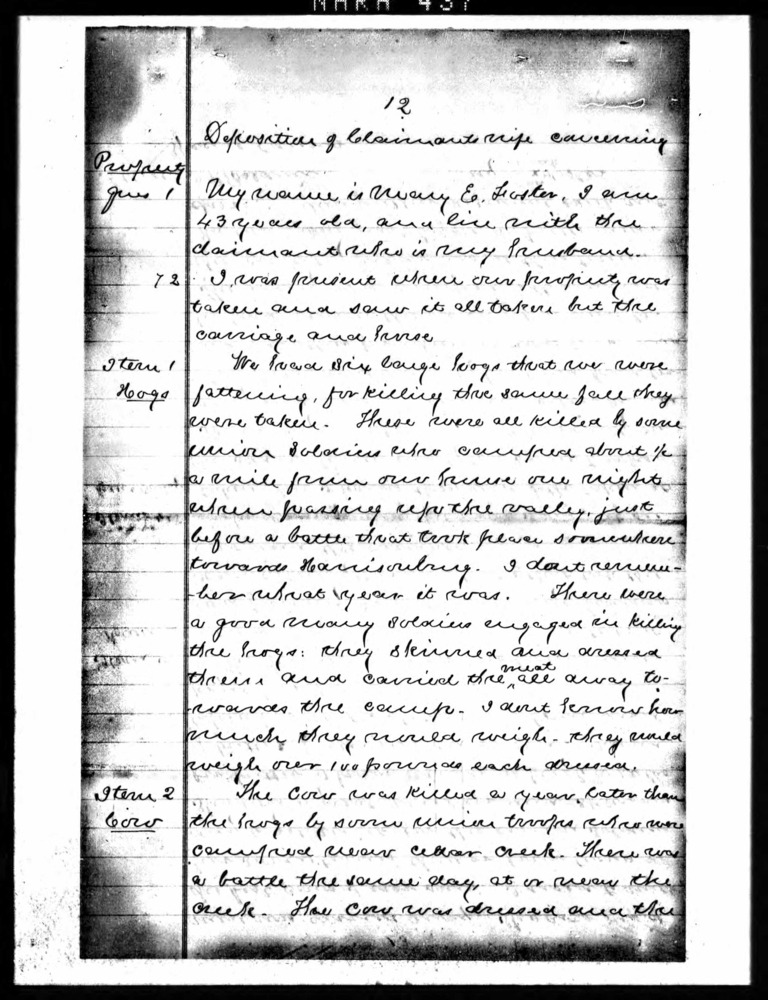 NARA 437
12
Deposition of Claimants wife concerning
Property
Ques 1 My name is Mary E. Foster, I am
43 years old, and live with the
claimant who is my husband.
72 I was present when our property was
taken and saw it all taken but the
carriage and horse
Item 1 We had six large hogs that we were
Hogs fattening, for killing the same fall they
were taken. These were all killed by some
union soldiers who camped about ½
a mile from our house one night
when passing up the valley, just
before a battle that took place somewhere
towards Harrisonburg. I dont remem-
ber what year it was. There were
a good many soldiers engaged in killing
the hogs: they skinned and dressed
them and carried the meat all away to-
wards the camp. I dont know how
much they would weigh. they would
weigh over 100 pounds each dressed.
Item 2 The cow was killed a year later than
Cow the hogs by some union troops who were
camped near cedar creek. There was
a battle the same day at or near the
creek. The cow was dressed and the